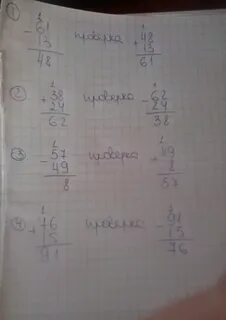 1 - 61 13 48 проверка + 48 13 61
2 + 38 24 62 проверка - 62 24 38
3 - 57 49 8 проверка + 49 8 57
4 + 76 15 91 проверка - 91 15 76